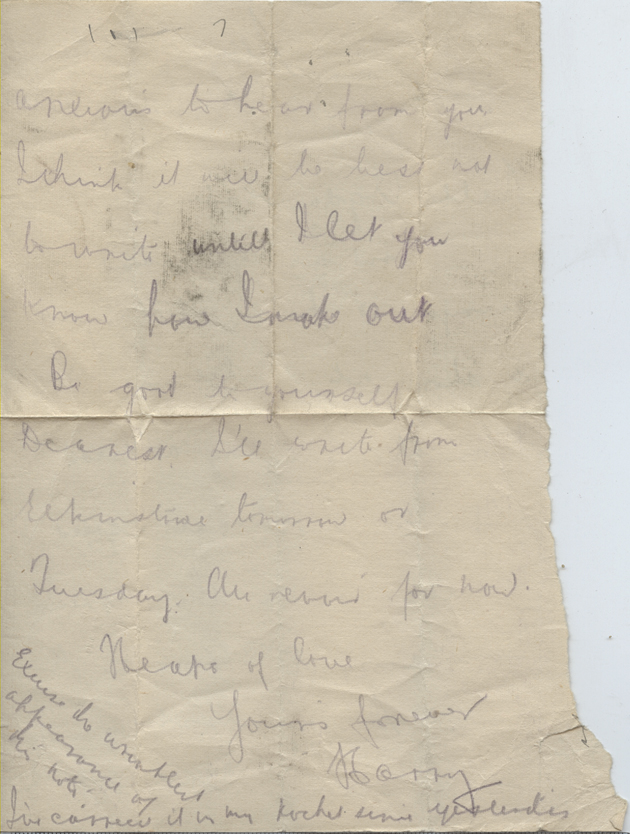 anxious to hear from you
I think it will be best not
to write untill I let you
know how I mak out
Be good to yourself
Dearest I'll write from
tomorrow or
Tuesday. Au revoir for now.
Heaps of love
Yours forever
Harry
Excuse the
appearance of
this note.
I've carried it in my Pocket since yesterday